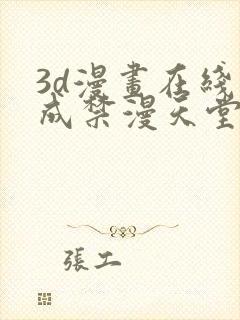 3d漫畫在綫
成禁漫天堂
張工